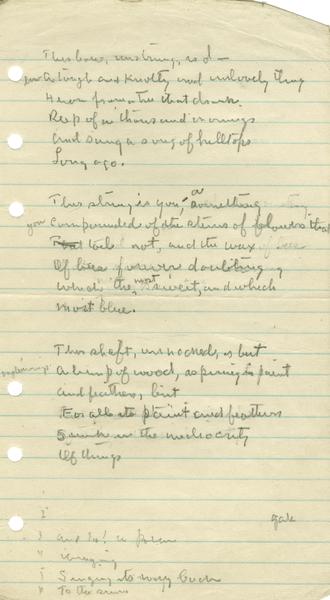 This bow, unstrung, is I —
a tough and knotty and unlovely thing
Hewn from a tree that drank
Deep of a thousand evenings
And sang a song of hilltops
Long ago.
This string is you, a something
you compounded of the stems of flowers that
toil not, and the wax of bees
Of bees forever doubting
which the most sweet, and which
most blue.
This shaft, unnocked, is but
A limp of wood, aspiring in paint
and feathers, but
For all its paint and feathers
Sunk in the mediocrity
Of things
I gak
I and lo! a
" 
I Singing to my
" To the